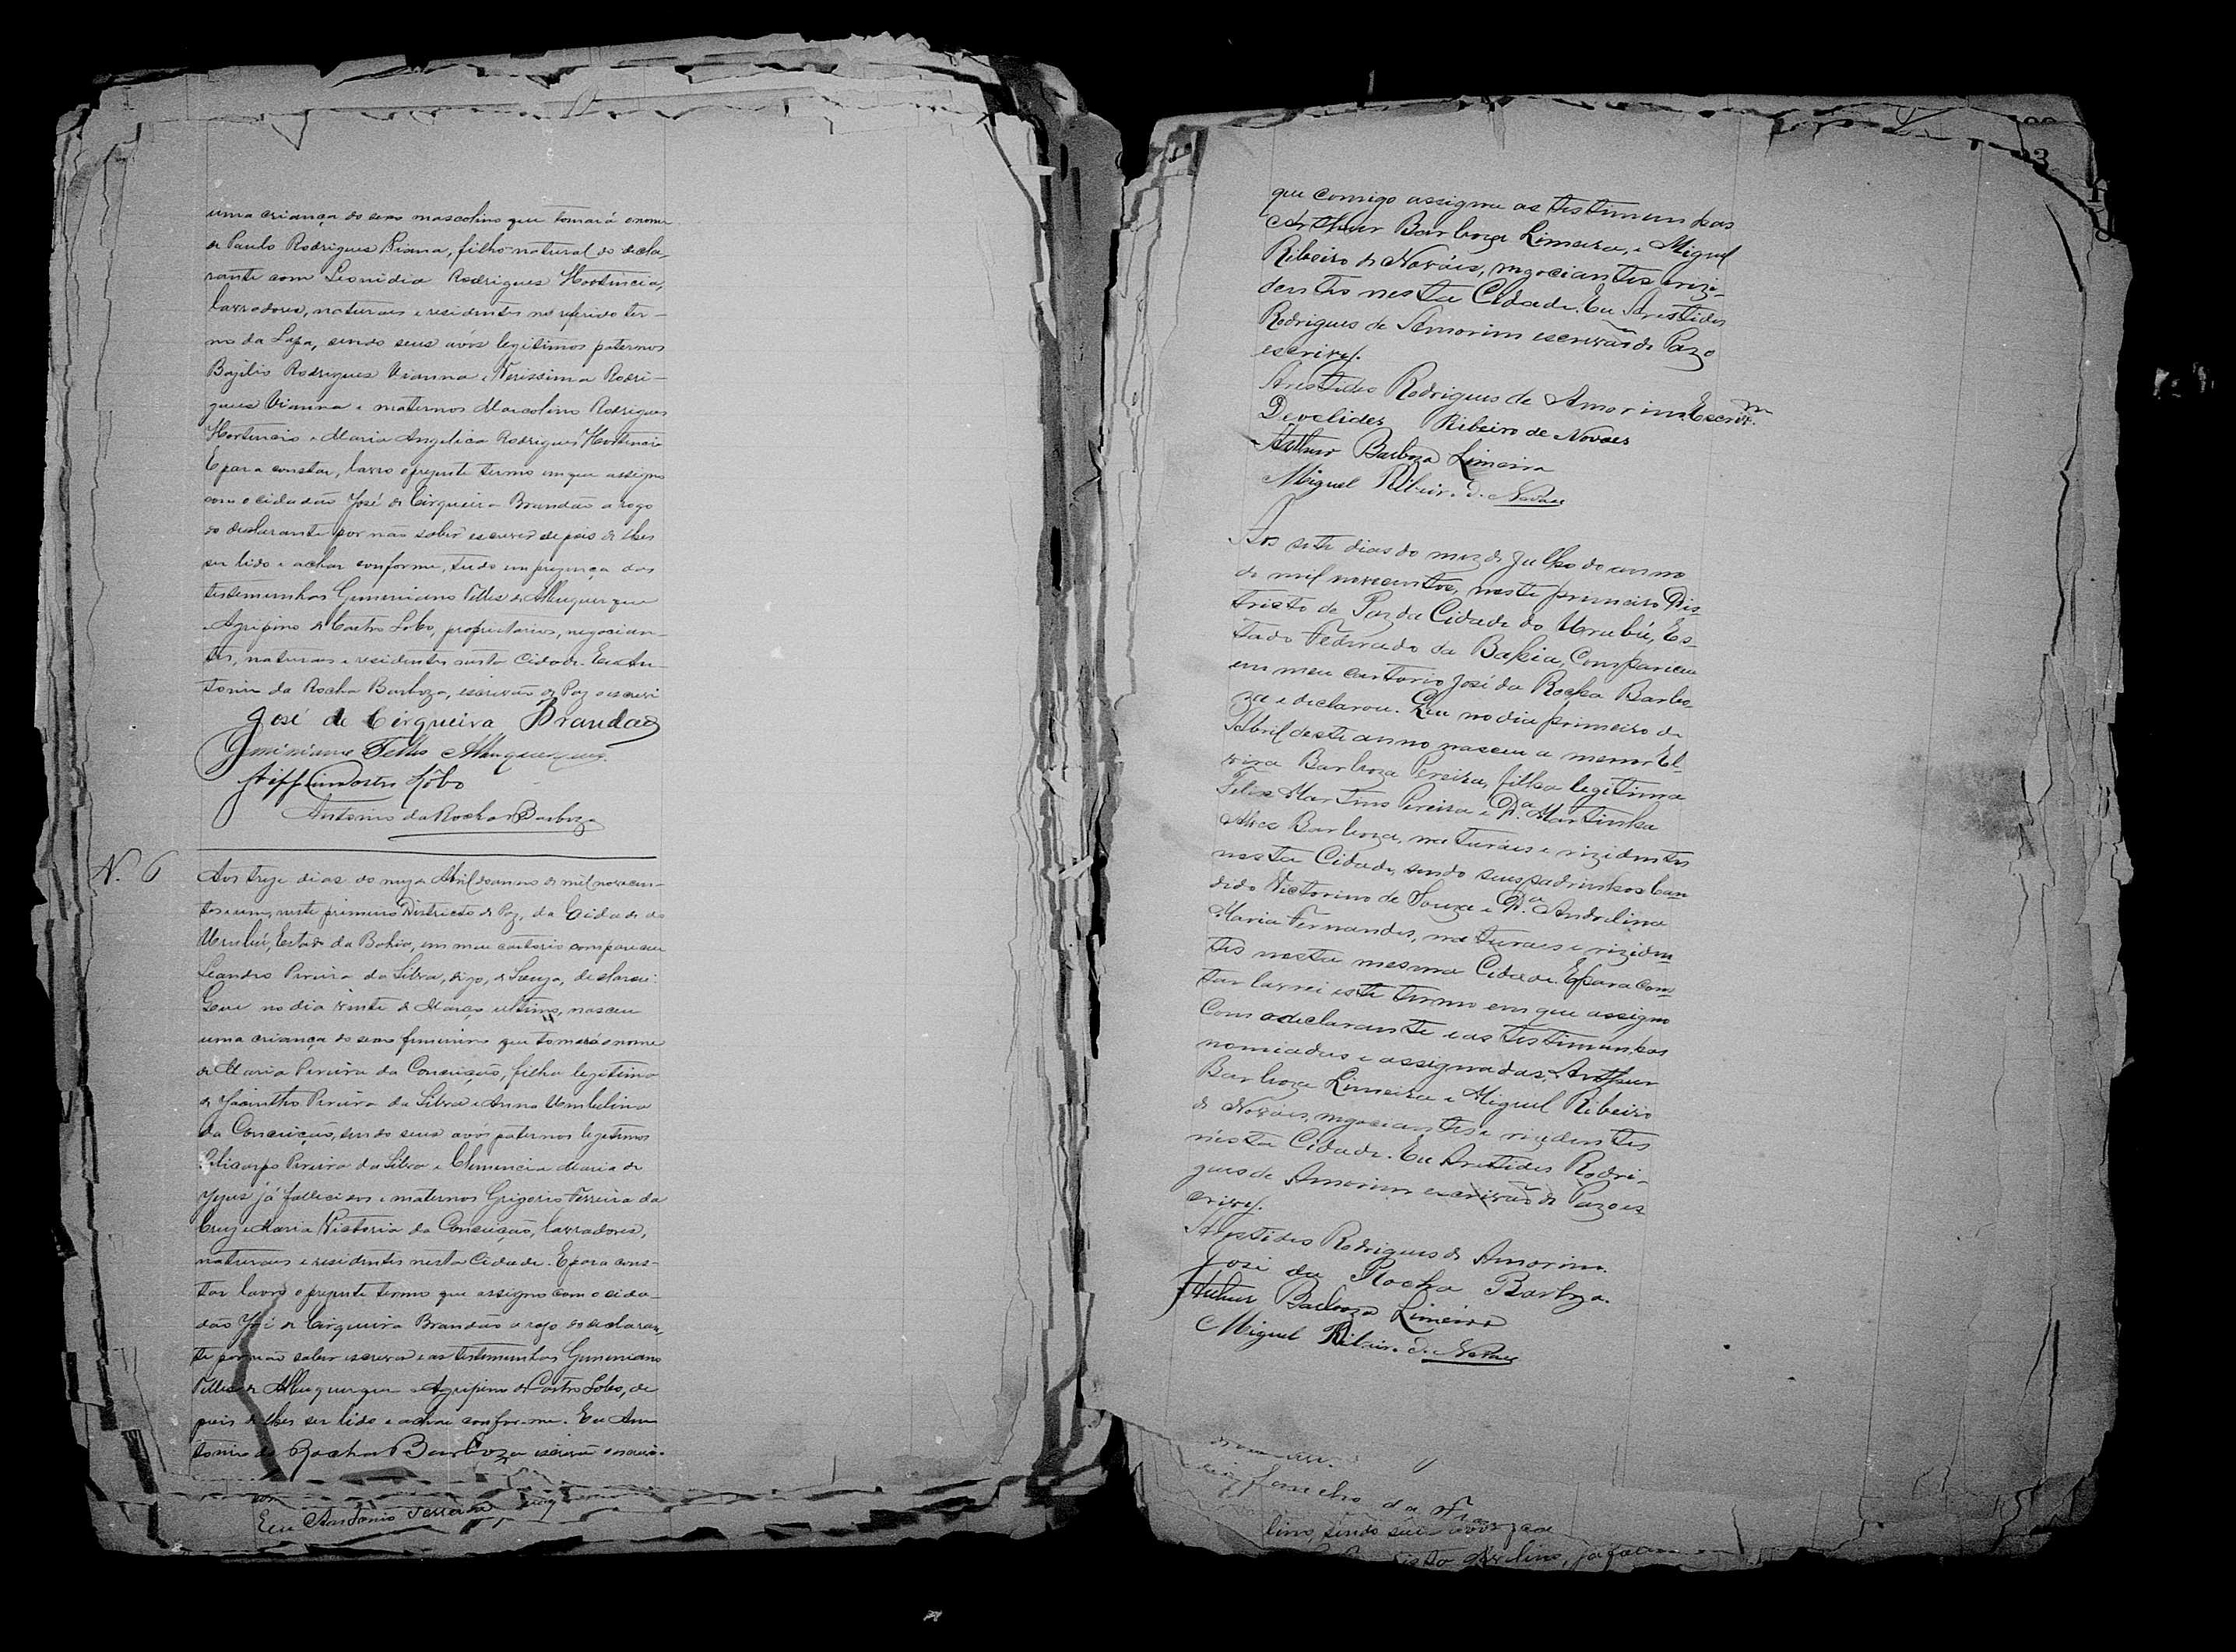 uma criança do sexo mascolino que tomará o nome
de Paulo Rodrigues Viana, filho natural do decla-
rante com Leonidia Rodrigues Hortencia,
lavradores, naturaes e residentes no referido ter-
mo da Lapa, sendo seus avós legitimos paternos
Bazilio Rodrigues Vianna e Verissima Rodri-
gues Vianna e maternos Marcolino Rodrigues
Hortencio e Maria Angelica Rodrigues Hortencia
E para constar, lavro o prezente termo em que assigno
com o cidadão José de Cirqueira Brandão a rogo
do declarante por não saber escrever depois de lhes
ser lido e achar conforme, tudo em prezença das
testemunhas Geminiano Telles de Albuquerque
e Agripino de Castro Lobo, proprietarios, negocian-
tes, naturaes e residentes nesta Cidade. Eu An-
tonio da Rocha Barboza, escrivão de Paz o escrevi
José de Cerqueira Brandão
Geminiano Telles Albuquerque
Castro Lôbo
Antonio da Rocha Barboza
N. 6
Aos treze dias do mez de Abril do anno de mil novecen-
tos e um, neste primeiro Districto de Paz, da Cidade do
Urubú, Estado da Bahia, em meu cartorio compareceu
Leandro Pereira da Silva, digo, de Souza, declarou:
Que no dia vinte de Março ultimo, nasceu
uma criança do sexo feminino que tomará o nome
de Maria Pereira da Conceição, filha legitima
de Jacintho Pereira da Silva e Anna Umbelina
da Conceição, sendo seus avós paternos legitimos
Policarpo Pereira da Silva e Clemencia Maria de
Jezus já fallecidos e maternos Grigorio Ferreira da
Cruz e Maria Victoria da Conceição, lavradores,
naturaes e residentes nesta Cidade. E para cons-
tar lavro o prezente termo que assigno com o cida-
dão José de Cirqueira Brandão a rogo do declaran-
te por não saber escrever e as testemunhas Geminiano
Telles de Albuquerque e Agripino de Castro Lobo, de
pois de lhes ser lido e achar conforme. Eu An
tonio da Rocha Barboza escrivão o escrevi.
Eu Antonio Ferreira
que comigo assigna as testimunhas
Arthur Barboza Limeira, e Miguel
Ribeiro de Nováes, negociantes e rizi-
dentes nesta Cidade. Eu Arestides
Rodrigues de Amorim escrivão de Paz o
escrivy.
Arestides Rodrigues de Amorim Escrivm.
Deoclides Ribeiro de Novaes
Arthur Barboza Limeira
Miguel Ribeiro de Novaes
Aos sete dias do mez de Julho do anno
de mil novecentos, neste primeiro Dis-
tricto de Paz da Cidade do Urubú, Es-
tado Federado da Bahia, Compareceu
em meu cartorio José da Rocha Barbo-
za e declarou. Que no dia primeiro de
Abril deste anno nasceu a menor El-
vira Barboza Pereira, filha legitima
Felix Martins Pereira e D.a Martinha
Alves Barboza, naturáes e rizidentes
nesta Cidade, sendo seus padrinhos Can
dido Victorino de Souza e D.a Andrelina
Maria Fernandes, naturaes e riziden
tes nesta mesma Cidade. E para cons
tar lavrei este termo em que assigno
Com o declarante e as testimunhas
nomiadas e assignadas, Arthur
Barboza Limeira e Miguel Ribeiro
de Nováes, negociantes e rizidentes
nésta Cidade. Eu Arestides Rodri-
gues de Amorim escrivão de Paz o es
crivy.
Arestides Rodrigues de Amorim.
José da Rocha Barboza.
Arthur Barboza Limeira
Miguel Ribeiro de Novaes
da
lino, sendo seus avós